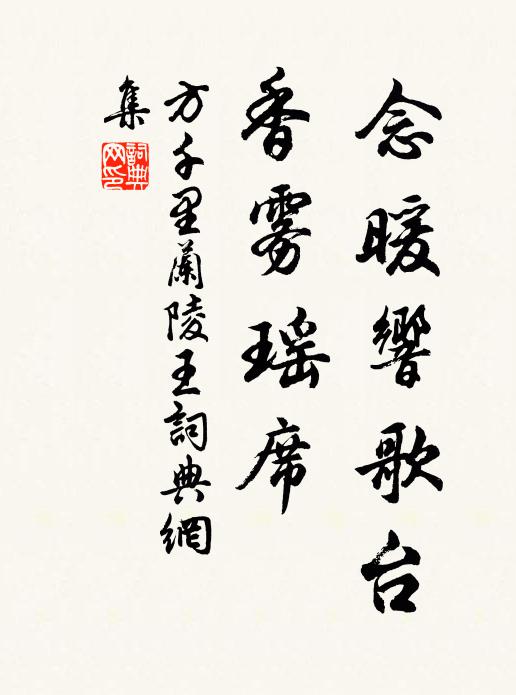 念暖響歌台
香雾瑶席
方千里蘭陵王詞典網
集
詞典网印